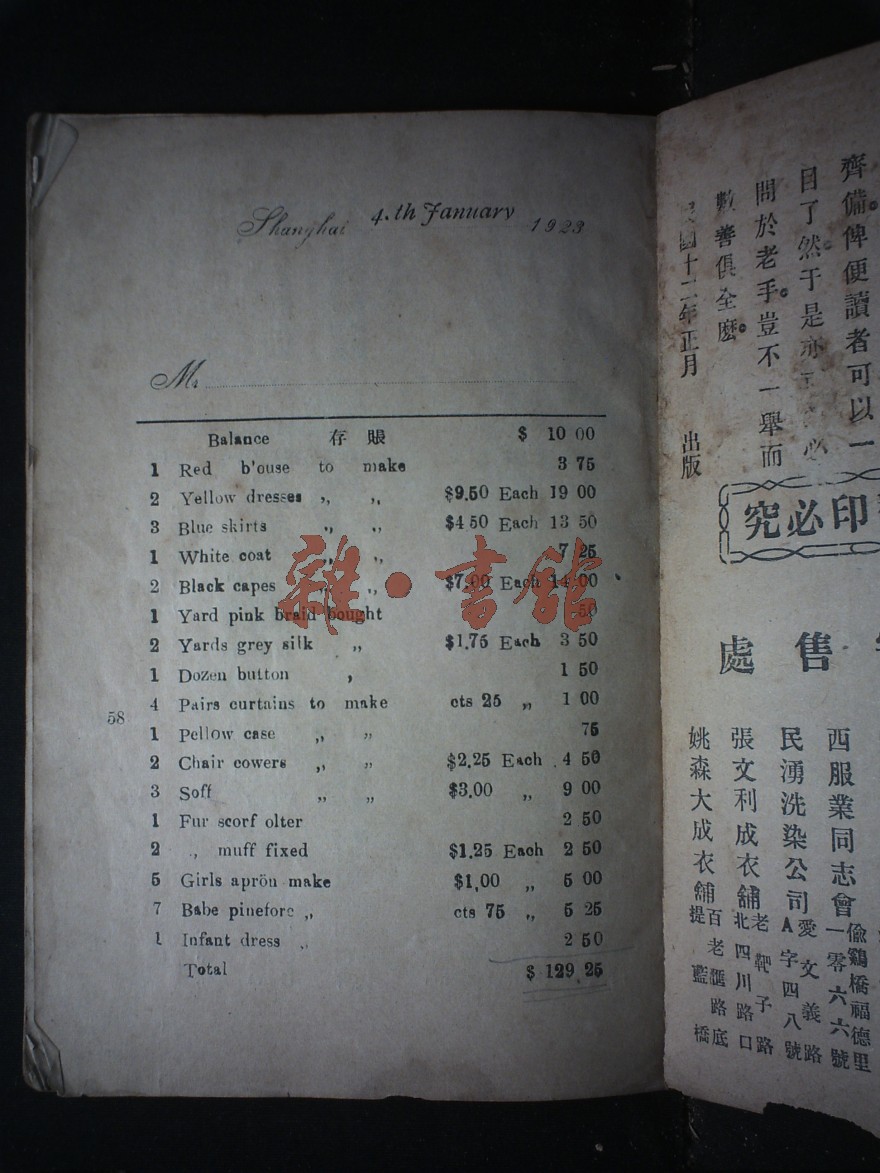 Shanghai 4.th January 1923
M
Balance 存賬 $ 10 00
1 Red b'ouse to make 3 75
2 Yellow dresses ,, ,, $9.50 Each 19 00
3 Blue skirts ,, ,, $4 50 Each 13 50
1 White coat ,, ,, 7 25
2 Black capes ,, $7.00 Each 14 00
1 Yard pink braid bought 50
2 Yards grey silk ,, $1.75 Each 3 50
1 Dozen button , 1 50
4 Pairs curtains to make cts 25 ,, 1 00
1 Pellow case ,, ,, 75
2 Chair cowers ,, ,, $2.25 Each 4 50
3 Soff ,, ,, $3.00 ,, 9 00
1 Fur scorf olter 2 50
2 ., muff fixed $1.25 Each 2 50
5 Girls aprön make $1,00 ,, 5 00
7 Babe pinefore ,, cts 75 ,, 5 25
1 Infant dress ,, 2 50
Total $ 129,25
58
雜·書館
齊備。俾便讀者可以一
目了然。于是
問於老手。豈不一舉而
數善俱全麽。
民國十二年正月 出版
印必究
售處
西服業同志會 偷鷄橋福德里一零六六號
民湧洗染公司 愛文義路A字四八號
張文利成衣舖 老靶子路北四川路口
姚森大成衣舖 百老匯路底提籃橋